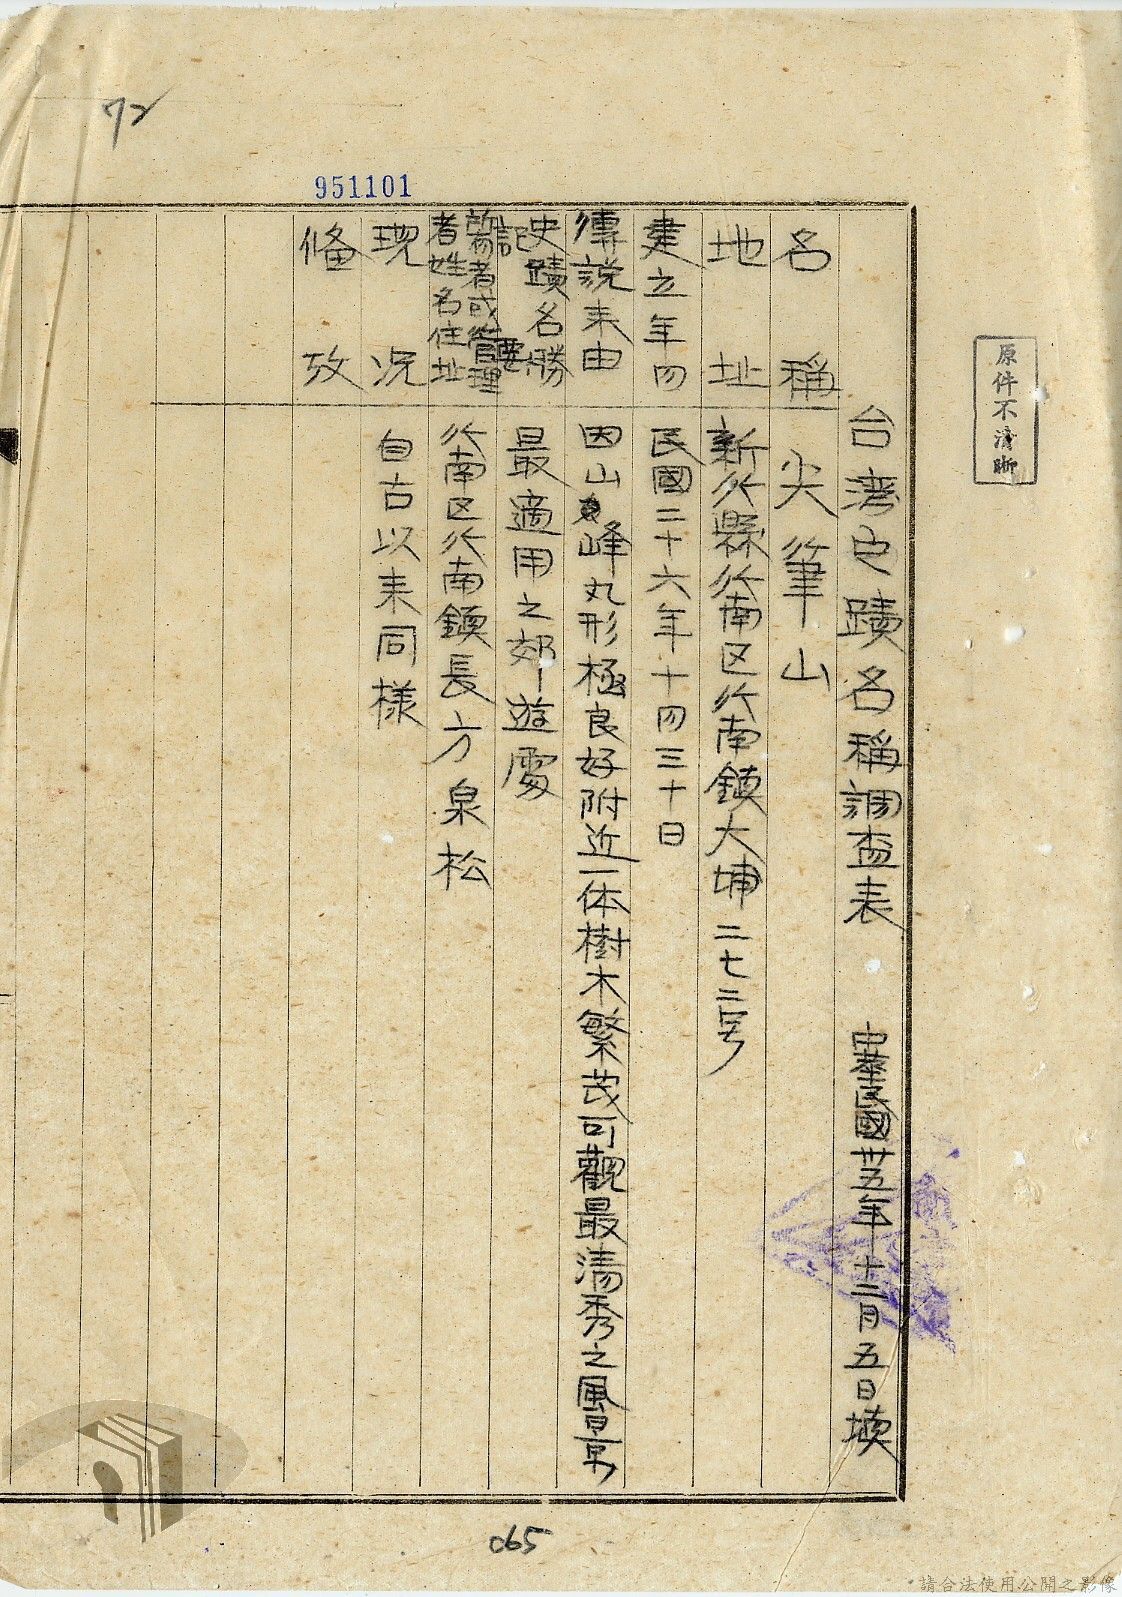 72
951101
原件不清晰
台湾史蹟名稱調查表 中華民國卅五年十二月五日填
名稱 尖筆山
地址 新竹縣竹南区竹南鎮大埔二七二号
建立年月 民國二十六年十月三十日
傳説来由 因山峰丸形極良好附近一体樹木繁茂可觀最清秀之風景
史蹟名勝記要 最適用之郊遊處
所有者或管理者姓名住址 竹南区竹南鎮長方泉松
現況 自古以来同様
備攷
065
請合法使用公開之影像